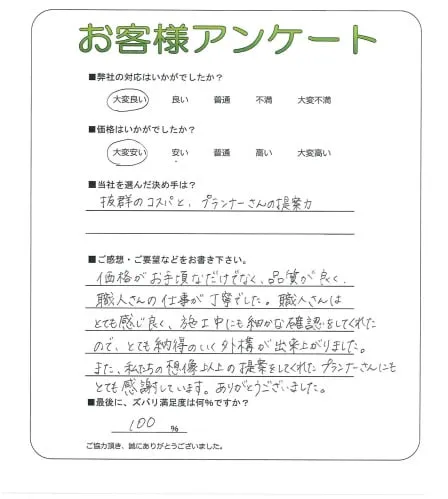 お客様アンケート
■弊社の対応はいかがでしたか？
大変良い 良い 普通 不満 大変不満
■価格はいかがでしたか？
大変安い 安い 普通 高い 大変高い
■当社を選んだ決め手は？
抜群のコスパと、プランナーさんの提案力
■ご感想・ご要望などをお書き下さい。
価格がお手頃なだけでなく、品質が良く、
職人さんの仕事が丁寧でした。職人さんは
とても感じ良く、施工中にも細かな確認をしてくれた
ので、とても納得のいく外構が出来上がりました。
また、私たちの想像以上の提案をしてくれたプランナーさんにも
とても感謝しています。ありがとうございました。
■最後に、ズバリ満足度は何%ですか？
100 %
ご協力頂き、誠にありがとうございました。